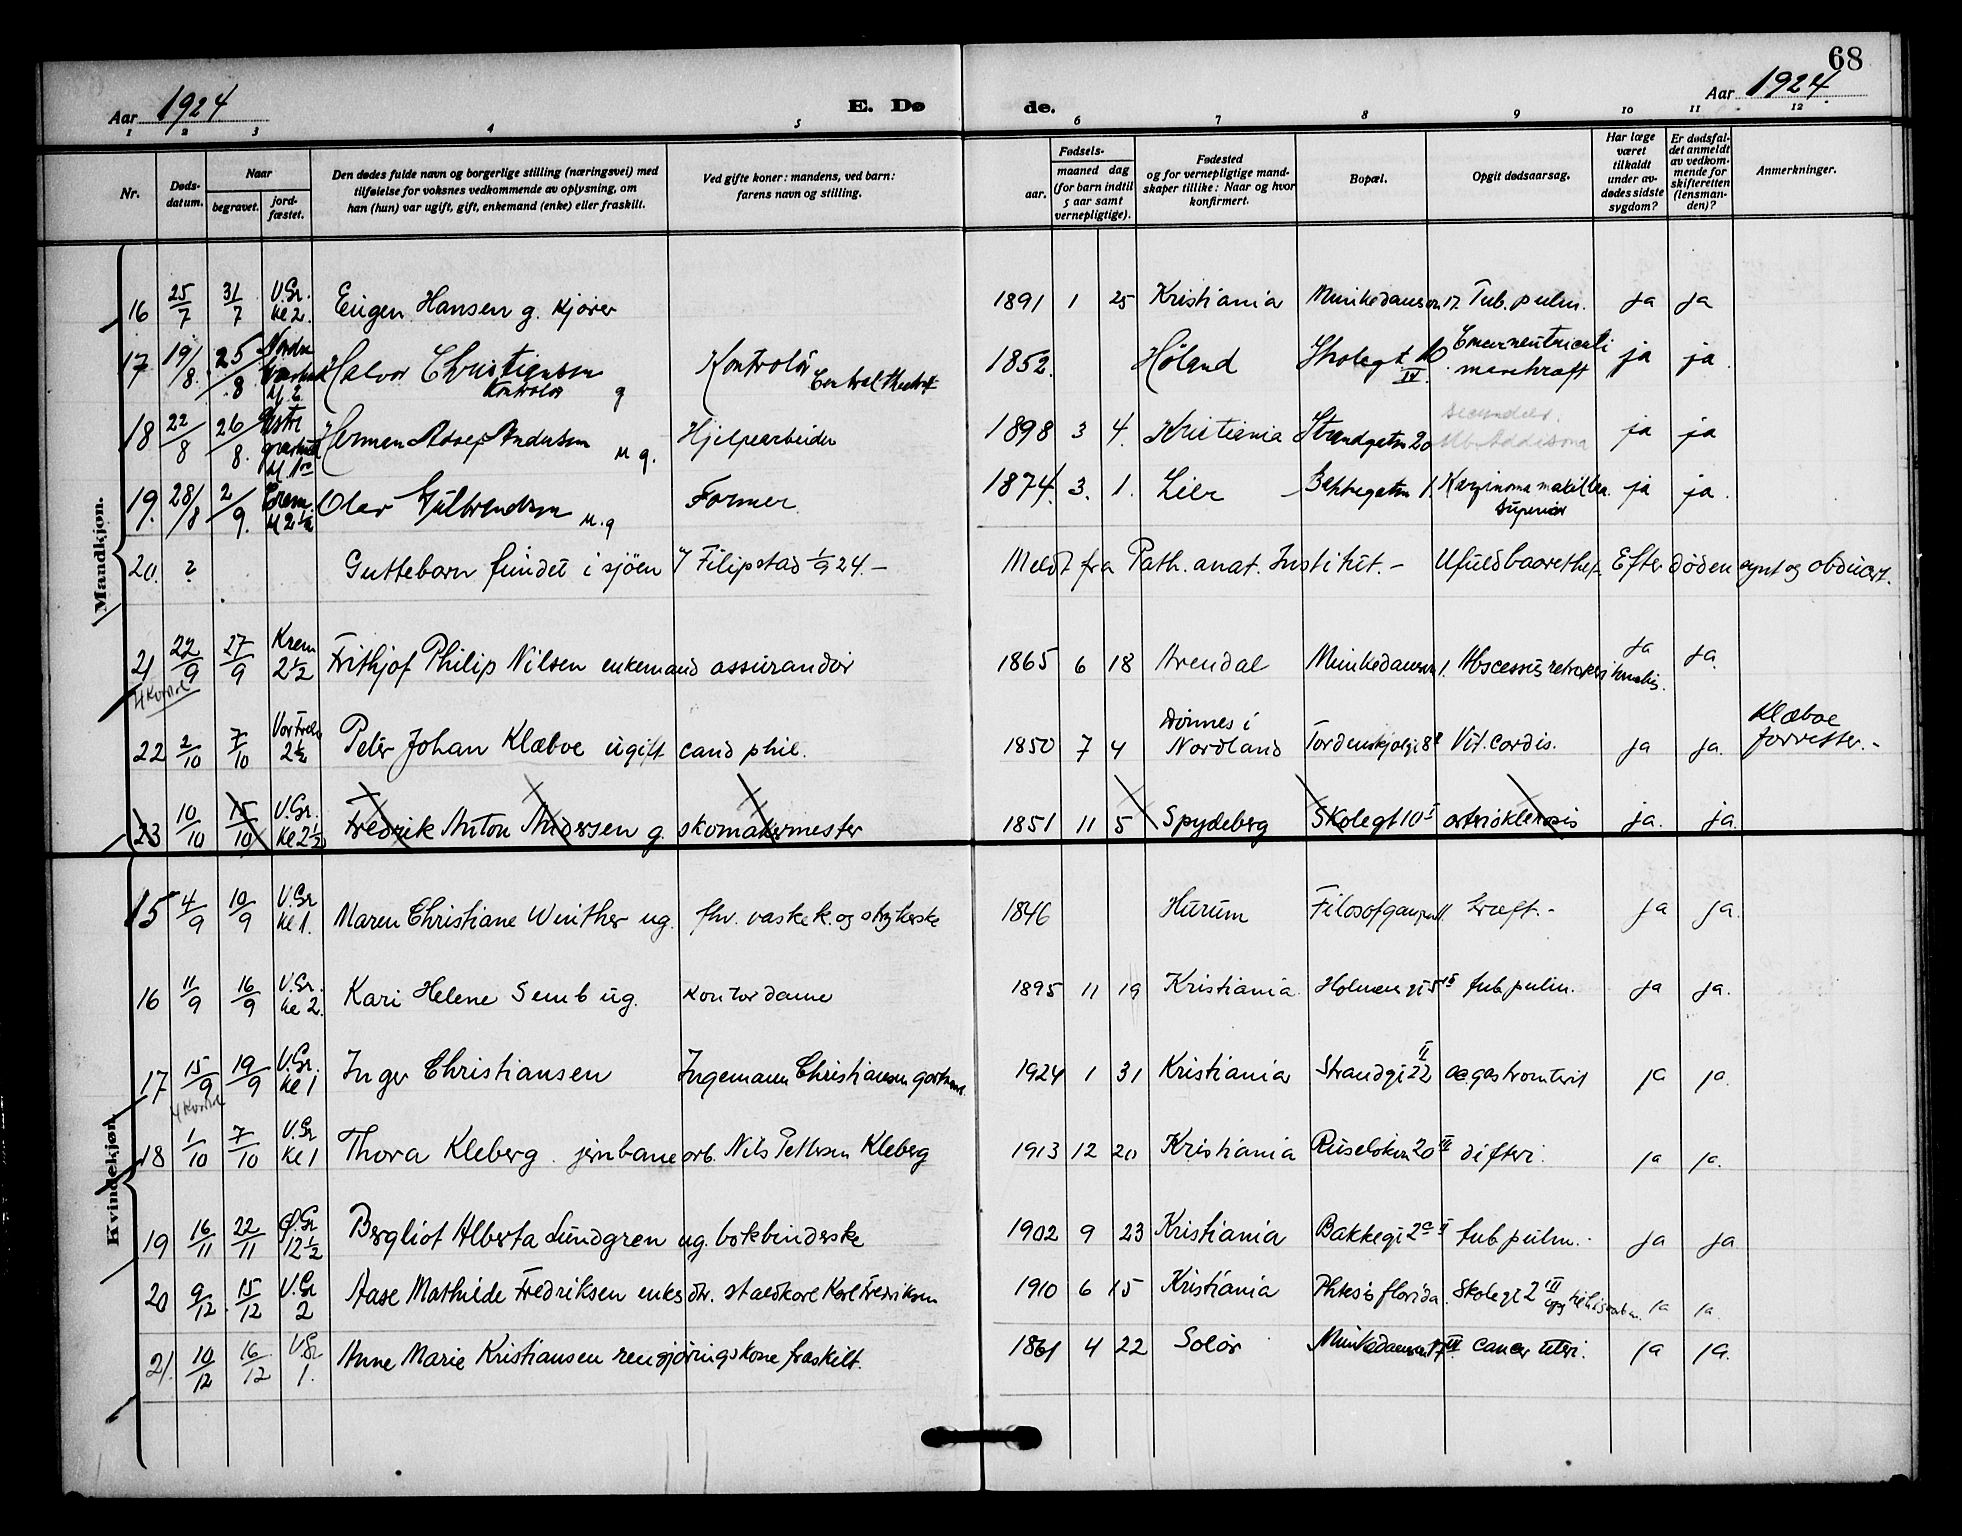 68
Aar 1924 E. Døde. Aar 1924
1 2 3 4 5 6 7 8 9 10 11 12
Nr.
Døds-
datum.
Naar
begravet.
jord-
fæstet.
Den dødes fulde navn og borgerlige stilling (næringsvei) med
tilføielse for voksnes vedkommende av oplysning, om
han (hun) var ugift, gift, enkemand (enke) eller fraskilt.
Ved gifte koner: mandens, ved barn:
farens navn og stilling.
Fødsels-
aar.
maaned dag
(for barn indtil
5 aar samt
vernepligtige).
Fødested
og for vernepligtige mand-
skaper tillike: Naar og hvor
konfirmert.
Bopæl.
Opgit dødsaarsag.
Har læge
været
tilkaldt
under av-
dødes sidste
sygdom?
Er dødsfal-
det anmeldt
av vedkom-
mende for
skifteretten
(lensman-
den)?
Anmerkninger.
Mandkjøn.
16 25/7 31/7 V.Gr. kl 2. Eugen Hansen g. kjører 1891 1 25 Kristiania 17. Tub. pulm. ja ja
17 19/8. 25/8 Nordre Halvor Christiansen g Kontrolør Central theatret 1852. Høland ja ja
Kontrolør
18 22/8 26/8. Herman Adolf Andersen M g. Hjelpearbeider 1898 3 4. Kristiania Strandgaten 20 Mb. Addisoni ja ja
19. 28/8 2/9. Krem. Olav Gulbrandsen M. g Former 1874. 3. 1. Lier Bakkegaten 1. superior ja ja.
20. ? Guttebarn fundet i sjøen v Filipstad 1/9 24.- Meldt fra Path. anat. Institut. - Ufuldbaaret Efter døden synt og obducert.
21 22/9 27/9 Krem 2½ Frithjof Philip Nilsen enkemand assurandør 1865 6 18 Arendal 1. Abscessus ja ja.
4 kvartal
22 2/10 7/10 2½ Peter Johan Klæboe ugift cand phil. 1850 7 4 Dønnes i Nordland 8 Vit. cordis. ja ja. Klæboe forretter.-
23 10/10 15/10 V.Gr. kl 2½ Fredrik Anton Andersen g. skomakermester 1851 11 5 Spydeberg Skolegt 10 I arteriosklerosis ja. ja.
Kvindekjøn.
15 4/9 10/9 V.Gr kl 1. Maren Christiane Winther ug. fhv. vaskek. og strykerske 1846 Hurum Filosofgangen 11. kræft.- ja ja.
16 11/9 16/9 V.Gr. kl 2. Kari Helene Semb ug. kontordame 1895 11 19 Kristiania. tub. pulm. ja ja.
17 15/9 19/9 V.Gr. kl 1 Inger Christiansen Ingemann Christiansen 1924 1 31 Kristiania Strandgt 22 II ac gastroenterit ja ja.
4 kvartal
18 1/10 7/10 V.Gr kl 1 Thora Kleberg. jernbanearb. Nils Pettersen Kleberg 1913 12 20 Kristiania Ruseløkvn 20 difteri. ja ja.
19 16/11 22/11 Ø.Gr 12½ Bergliot Alberta Lundgren ug. bokbinderske 1902 9 23 Kristiania Bakkegt 2 tub. pulm.- ja ja
20 9/12. 15/12 V.Gr 2 Aase Mathilde Fredriksen enkes dtr. staldkarl Karl Fredriksen 1910 6 15 Kristiania Phtisis florida. Skolegt 2 III ja ja.
21. 10/12 16/12 V.Gr 1. Anne Marie Kristiansen rengjøringskone fraskilt. 1861 4 22 Solør cancer uteri. ja ja.